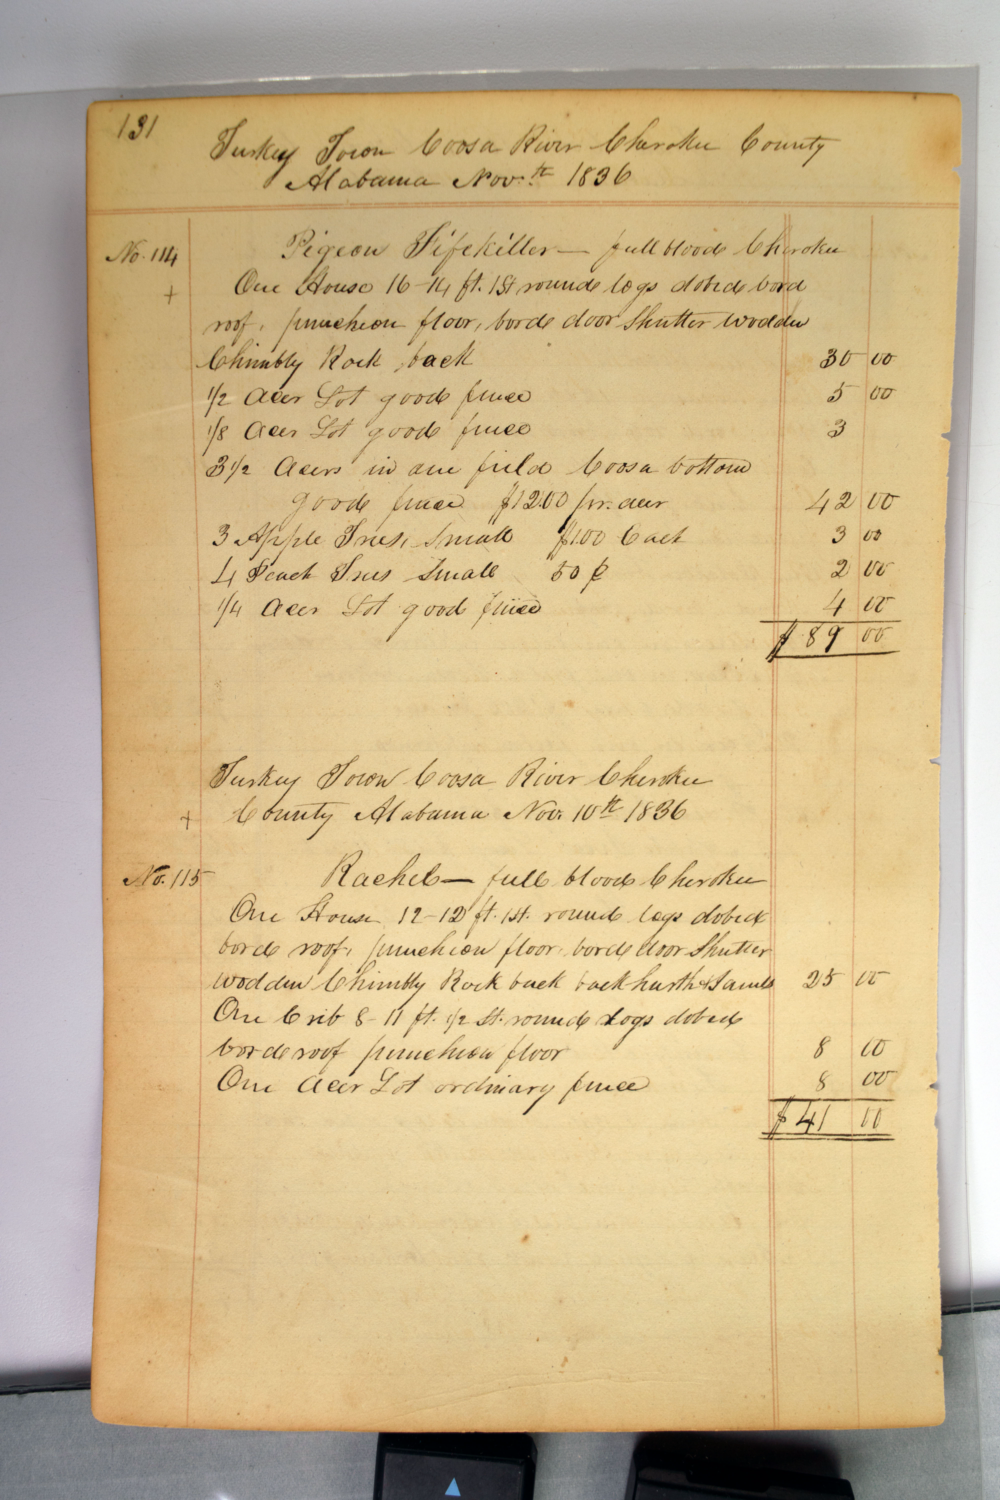 131
Turkey Town Coosa River Cherokee County
Alabama Nov. th 1836
No. 114 Pigeon Fifekiller — full blood Cherokee
+ One House 16-14 ft. 1 St round logs dobed bord
roof, puncheon floor, bord door Shutter wodden
Chimbly Rock back 30 00
1/2 Acer Lot good fence 5 00
1/8 Acer Lot good fence 3
3 1/2 Acers in one field Coosa bottom
good fence $12.00 pr. acer 42 00
3 Apple Trees, Small $1.00 Each 3 00
4 Peach Trees Small 50 ¢ 2 00
1/4 Acer Lot good fence 4 00
$ 89 00
Turkey Town Coosa River Cherokee
+ County Alabama Nov. 10th 1836
No. 115 Rachel — full blood Cherokee
One House 12-12 ft. 1 St. round logs dobed
bord roof, puncheon floor, bord door Shutter
wodden Chimbly Rock back back harth & Jambs 25 00
One Crib 8-11 ft. 1/2 St. round Logs dobed
bord roof puncheon floor 8 00
One Acer Lot ordinary fence 8 00
$ 41 00